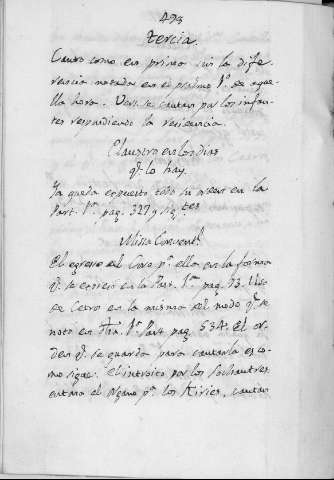 493
Tercia.
Canto como en prima sin la dife-
rencia notada en el psalmo 1º. de aque-
lla hora. Vers. se cantan por los infan-
tes respondiendo la residencia.
Claustro en los dias
q. lo hay.
Ya queda expuesto todo su en la
Part. 1ª. pag. 327 y sig.tes
Missa Convent.l
El egreso del Coro pª. ella en la forma
q. se expresó en la Part. 1ª. pag. 93. Uso
de Cetro en la misma del modo q. se
notó en 1ª. Part. pag. 534. El or-
den q. se guarda para cantarla es co-
mo sigue. El introito por los Sochantres
entona el organo pª. los Kiries, cantan